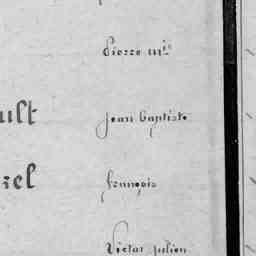 Pierre M.is
ult Jean Baptiste
zel françois
Victor Julien